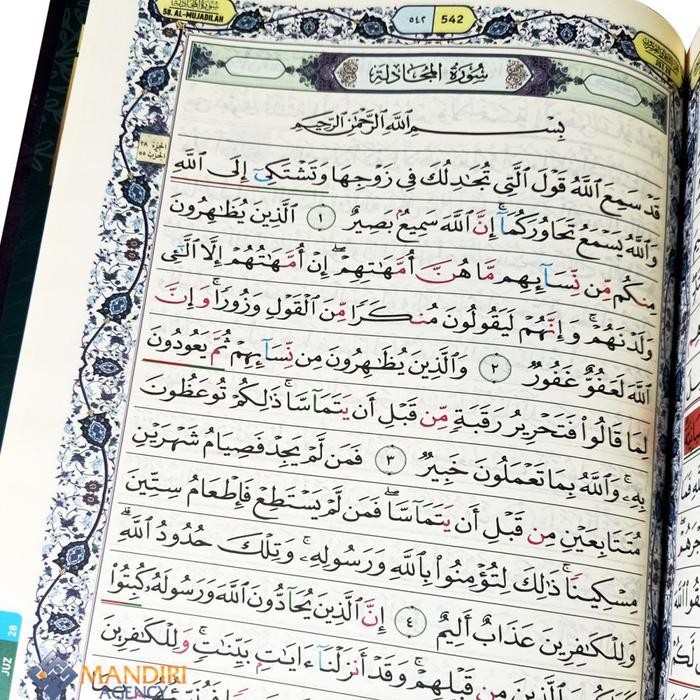 سورة المجادلة
58. AL-MUJADILAH
٥٤٢ 542
سُورَةُ المُجَادلة
الجزء ٢٨
الحزب ٥٥
بِسْمِ اللَّهِ الرَّحْمَٰنِ الرَّحِيمِ
قَدْ سَمِعَ اللَّهُ قَوْلَ الَّتِي تُجَادِلُكَ فِي زَوْجِهَا وَتَشْتَكِيٓ إِلَى اللَّهِ
وَاللَّهُ يَسْمَعُ تَحَاوُرَكُمَآ ۚ إِنَّ اللَّهَ سَمِيعٌۢ بَصِيرٌ ١ الَّذِينَ يُظَاهِرُونَ
مِنكُم مِّن نِّسَآئِهِم مَّا هُنَّ أُمَّهَاتِهِمْ ۖ إِنْ أُمَّهَاتُهُمْ إِلَّا الَّٰٓئِي
وَلَدْنَهُمْ ۚ وَإِنَّهُمْ لَيَقُولُونَ مُنكَرًا مِّنَ الْقَوْلِ وَزُورًا ۚ وَإِنَّ
اللَّهَ لَعَفُوٌّ غَفُورٌ ٢ وَالَّذِينَ يُظَاهِرُونَ مِن نِّسَآئِهِمْ ثُمَّ يَعُودُونَ
لِمَا قَالُوا فَتَحْرِيرُ رَقَبَةٍ مِّن قَبْلِ أَن يَتَمَآسَّا ۚ ذَٰلِكُمْ تُوعَظُونَ
بِهِۦ ۚ وَاللَّهُ بِمَا تَعْمَلُونَ خَبِيرٌ ٣ فَمَن لَّمْ يَجِدْ فَصِيَامُ شَهْرَيْنِ
مُتَتَابِعَيْنِ مِن قَبْلِ أَن يَتَمَآسَّا ۖ فَمَن لَّمْ يَسْتَطِعْ فَإِطْعَامُ سِتِّينَ
مِسْكِينًا ۚ ذَٰلِكَ لِتُؤْمِنُوا بِاللَّهِ وَرَسُولِهِۦ ۚ وَتِلْكَ حُدُودُ اللَّهِ ۗ
وَلِلْكَافِرِينَ عَذَابٌ أَلِيمٌ ٤ إِنَّ الَّذِينَ يُحَآدُّونَ اللَّهَ وَرَسُولَهُۥ كُبِتُوا
الَّذِينَ مِن قَبْلِهِمْ ۚ وَقَدْ أَنزَلْنَآ ءَايَاتٍۭ بَيِّنَاتٍ ۚ وَلِلْكَافِرِينَ
JUZ 28
MANDIRI
AGENCY